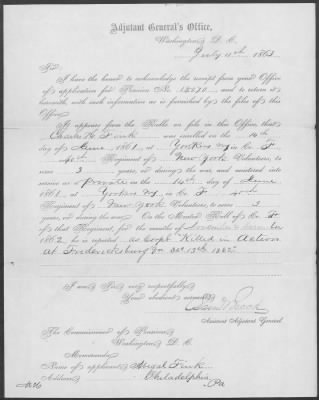 Adjutant General's Office,
Washington, D. C.
July 11th 1863
Sir:
I have the honor to acknowledge the receipt from your Office
of application for Pension No. and to return it
herewith, with such information as is furnished by the files of this
Office.
It appears from the Rolls on file in this Office, that
Charles H. Funk was enrolled on the 14th
day of June 1861 at Yonkers NY in Co. F
40th Regiment of New York Volunteers, to
serve 3 years, or during the war, and mustered into
service as a Private on the 14th day of June
1861 at Yonkers NY in Co. F 40th
Regiment of New York Volunteers, to serve 3
years, or during the war. On the Muster Roll of Co. F
of that Regiment, for the months of November &
1862 he is reported as Corpl Killed in Action
at Fredericksburg Va Dec 13th 1862
I am, Sir, very respectfully,
Your obedient servant,
Assistant Adjutant General.
The Commissioner of Pensions,
Washington, D. C.
Memoranda:
Name of applicant, Abigal Funk
Address, Philadelphia
Pa